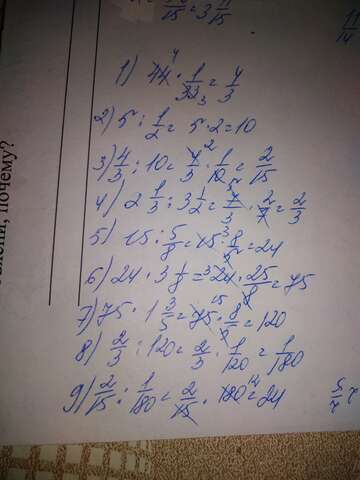 3 11/15
11/14
елепи, почему?
1) 44 · 1/33 = 4/3
2) 5 : 1/2 = 5 · 2 = 10
3) 4/3 : 10 = 4/3 · 1/10 = 2/15
4) 2 1/3 : 3 1/2 = 7/3 · 2/7 = 2/3
5) 15 : 5/8 = 15 · 8/5 = 24
6) 24 · 3 1/8 = 24 · 25/8 = 75
7) 75 · 1 3/5 = 75 · 8/5 = 120
8) 2/3 : 120 = 2/3 · 1/120 = 1/180
9) 2/15 : 1/180 = 2/15 · 180 = 24